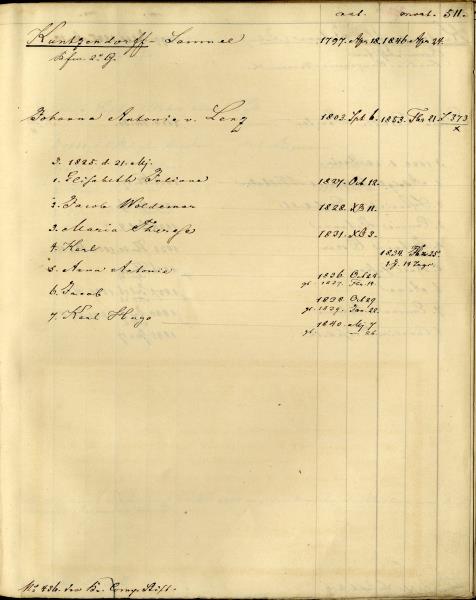 nat. mort. 511.
Küntzendorff Samuel 1797. Apr 18. 1846. Apr 24.
Kfm. 2r G.
Johanna Antonie v. Lenz 1803. Spt 6. 1853. Fbr 21. S. 373
x
J. 1825. d. 21. Mj.
1. Elisabeth Juliane 1827. Oct 12.
2. Jacob Woldemar 1828. XB 11.
3. Maria Therese 1831. XB 3.
4. Karl 1834. 25.
5. Anna Antonie 1836. Oct 24
gt. 1837. Fbr. 14.
6. Jacob 1838. Oct 29
gt. 1839. Jan. 28.
7. Karl Hugo 1840. Mj 7
gt. — 26.
No 436. der